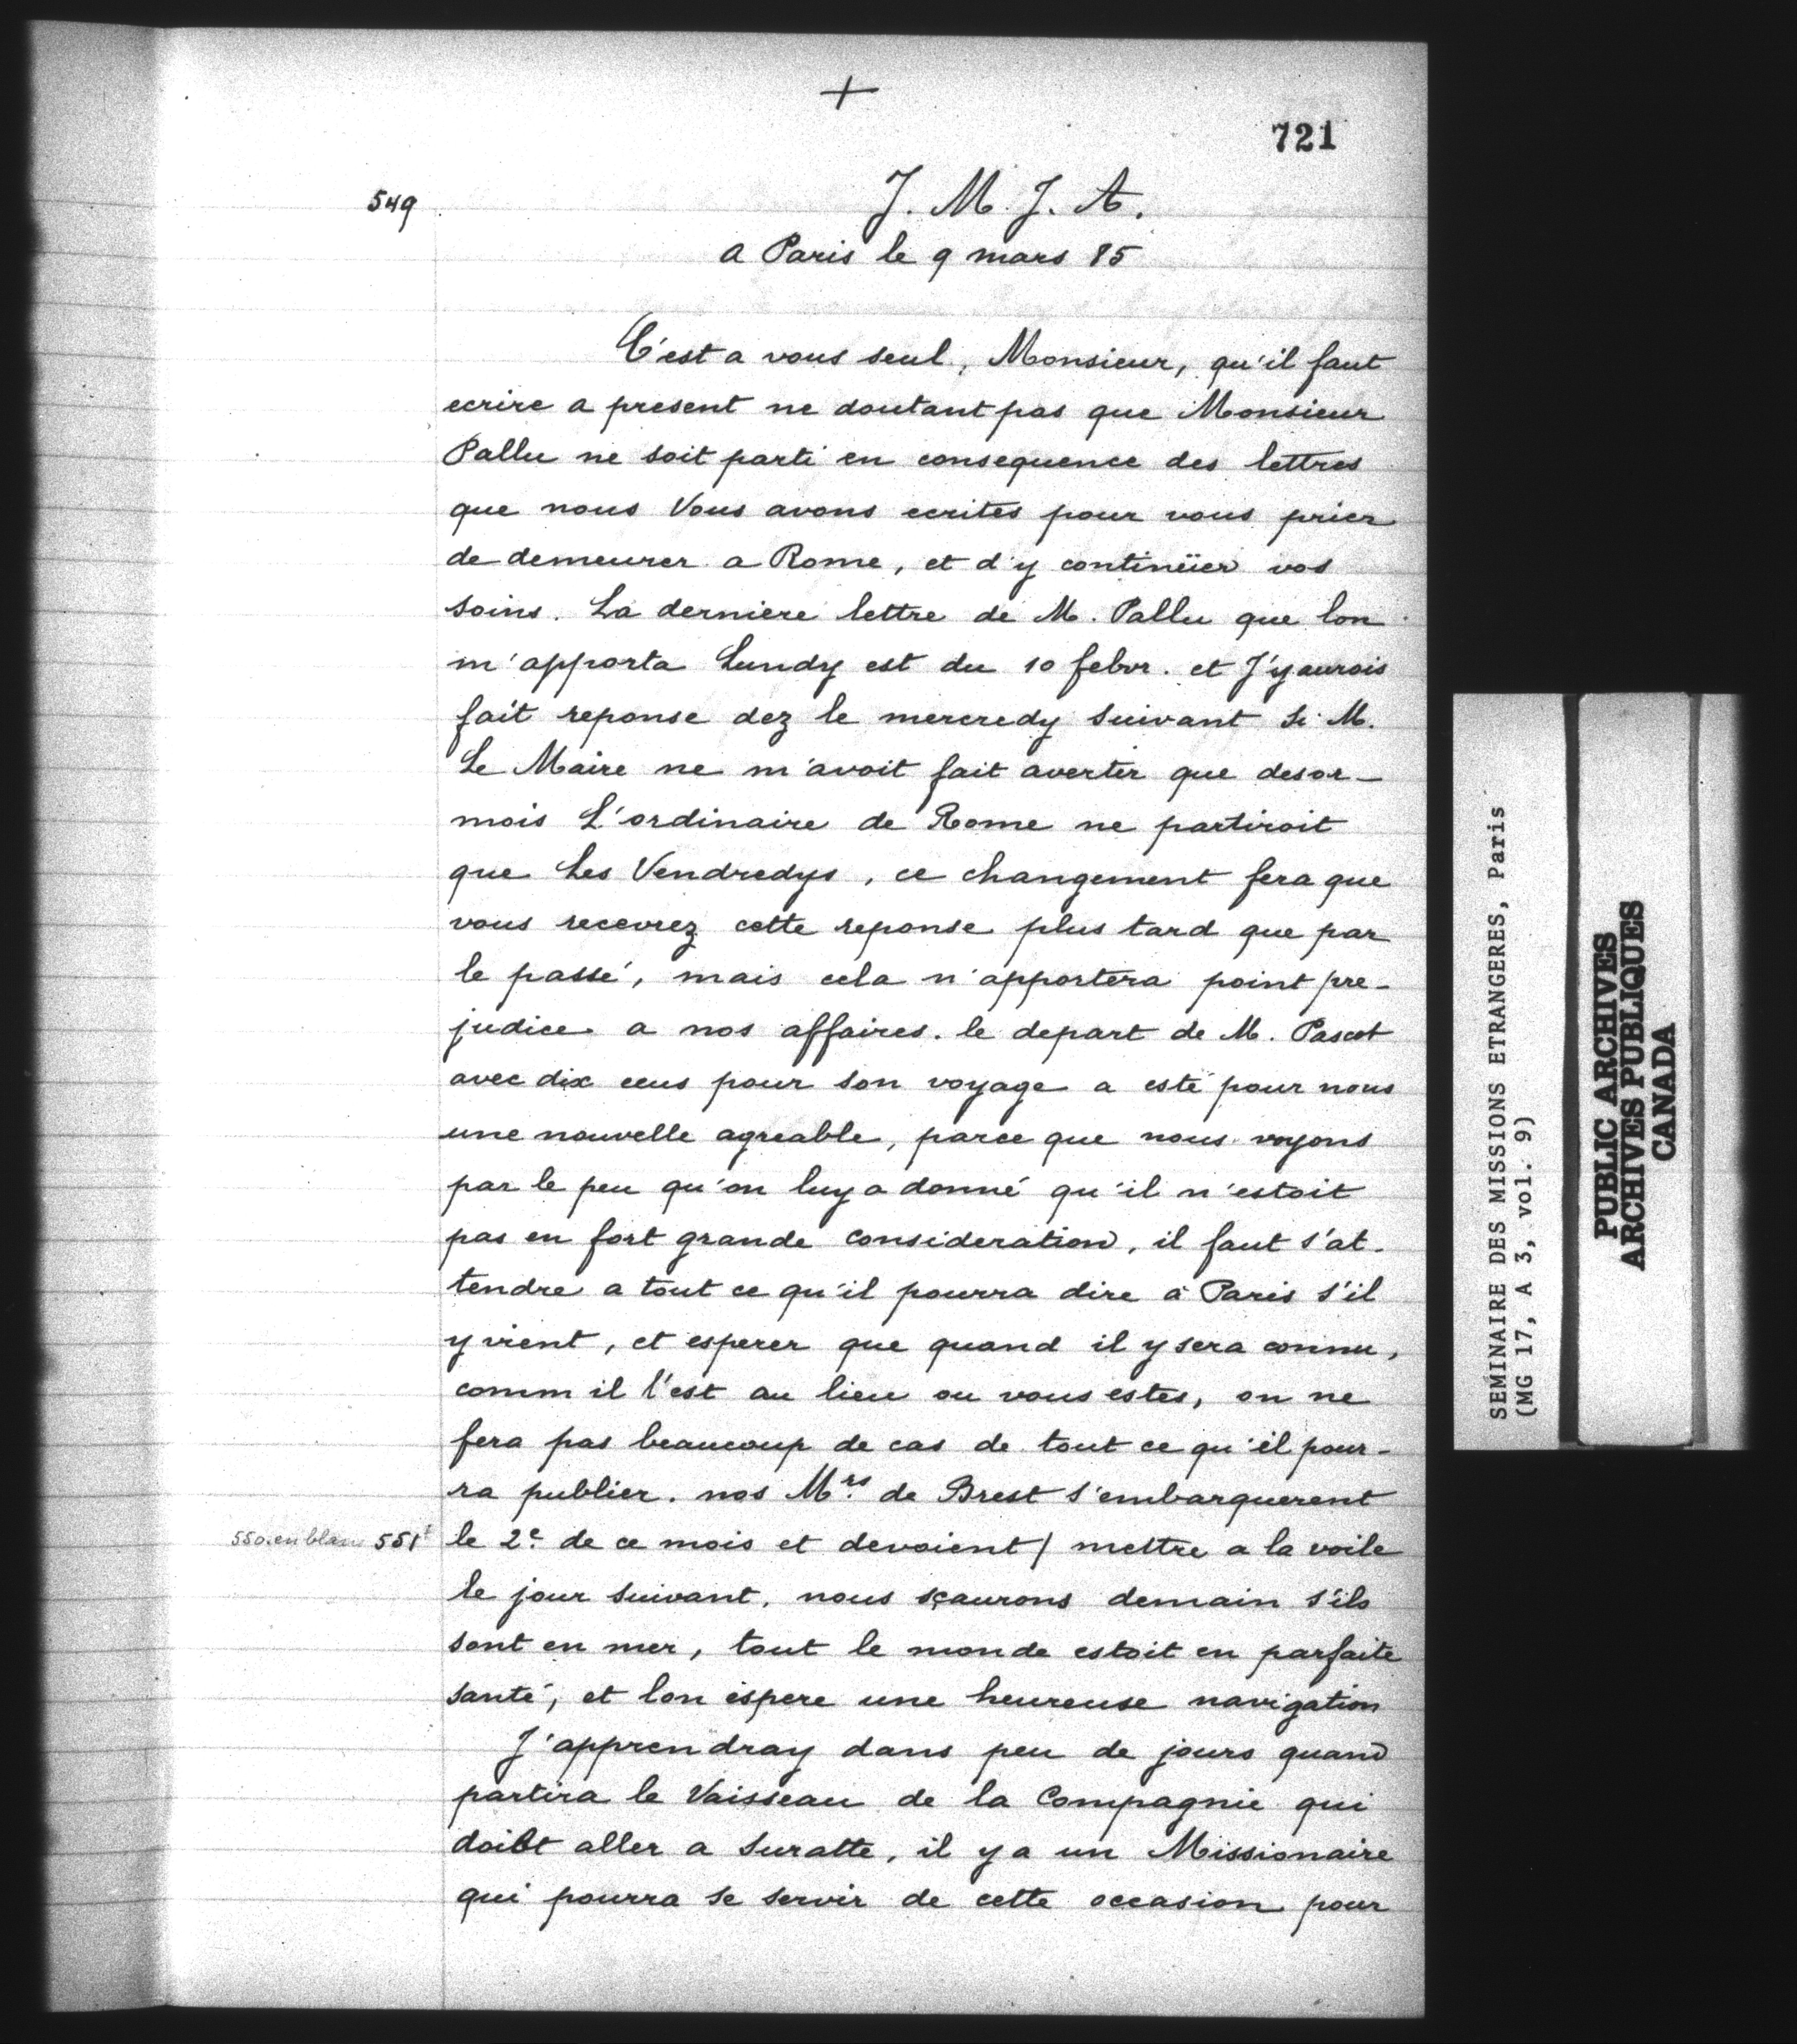 +
721
549
J. M. J. A.
a Paris le 9 mars 85
C'est a vous seul, Monsieur, qu'il faut
ecrire a present ne doutant pas que Monsieur
Pallu ne soit parti en consequence des lettres
que nous Vous avons ecrites pour vous prier
de demeurer a Rome, et d'y continüer vos
soins. La derniere lettre de M. Pallu que lon
m'apporta Lundy est du 10 febvr. et J'y aurois
fait reponse dez le mercredy suivant si M.
Le Maire ne m'avoit fait avertir que desor-
mois L'ordinaire de Rome ne partiroit
que Les Vendredys, ce changement fera que
vous recevrez cette reponse plus tard que par
le passé, mais cela n'apportera point pre-
judice a nos affaires. le depart de M. Pascot
avec dix ecus pour son voyage a esté pour nous
une nouvelle agreable, parce que nous voyons
par le peu qu'on luy a donné qu'il n'estoit
pas en fort grande consideration, il faut s'at-
tendre a tout ce qu'il pourra dire à Paris s'il
y vient, et esperer que quand il y sera connu,
comm il l'est au lieu ou vous estes, on ne
fera pas beaucoup de cas de tout ce qu'il pour-
ra publier. nos Mrs. de Brest s'embarquerent
550. en blanc 551t le 2e. de ce mois et devoient / mettre a la voile
le jour suivant, nous sçaurons demain s'ils
sont en mer, tout le monde estoit en parfaite
santé, et lon espere une heureuse navigation
J'apprendray dans peu de jours quand
partira le Vaisseau de la Compagnie qui
doibt aller a Suratte, il y a un Missionaire
qui pourra se servir de cette occasion pour
SEMINAIRE DES MISSIONS ETRANGERES, Paris
(MG 17, A 3, vol. 9)
PUBLIC ARCHIVES
ARCHIVES PUBLIQUES
CANADA